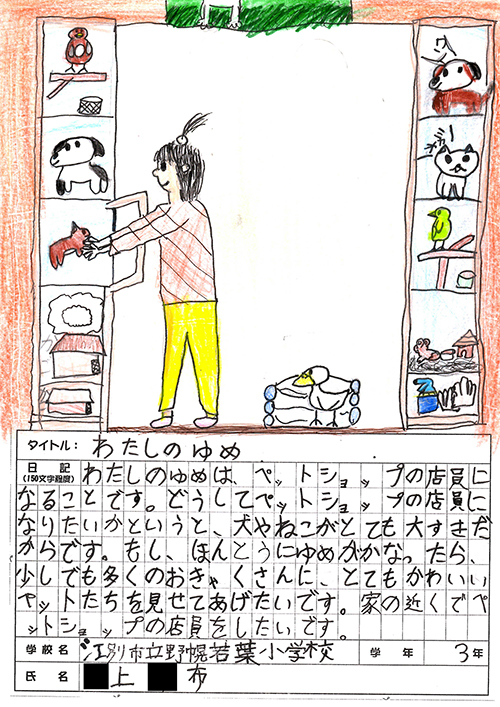 ワン
ニャー
タイトル： わたしのゆめ
日記 わたしのゆめは、ペットショップの店員に
(150文字程度) なることです。どうしてペットショップの店員に
なりたいかというと、犬やねこがとても大すきだ
からです。もし、ほんとうにゆめがかなったら、
少しでも多くのおきゃくさんに、とてもかわいい
ペットたちを見せてあげたいです。家の近くでペ
ットショップの店員をしたいです。
学校名 江別市立野幌若葉小学校 学年 3年
氏名 上 布